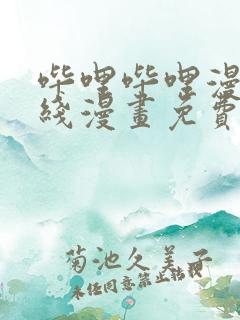 哔哩哔哩漫
线漫畫免費
菊池久美子
未经同意禁止转载